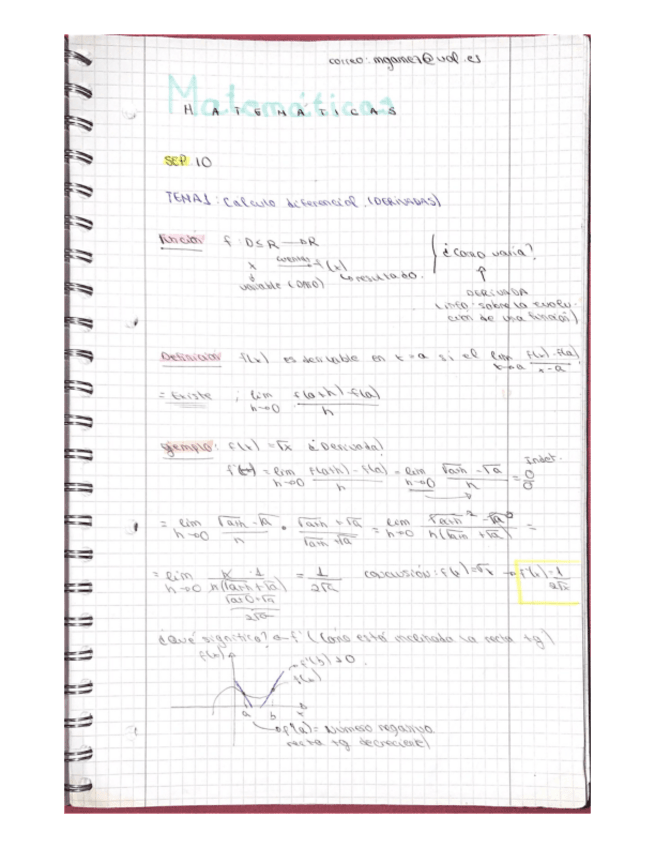 correo: mgamez@uol.es
Matemáticas
MATEMÁTICAS
SEP 10
TEMA1: Calculo diferencial (DERIVADAS)
Función f: D⊆R → R ¿Como varía?
x → f(x)
variable (DATO) resultado.
DERIVADA
(INFO sobre la evolu-
ción de una función)
Definicion f(x) es derivable en x=a si el lim x→a f(x)-f(a) / x-a
= Existe ; lim h→0 f(a+h)-f(a) / h
ejemplo: f(x) = √x ¿Derivada?
f'(x) = lim h→0 f(a+h)-f(a) / h = lim h→0 √a+h - √a / h = 0/0 Indet.
= lim h→0 √a+h - √a / h · √a+h + √a / √a+h + √a = lim h→0 √a+h² - √a² / h(√a+h + √a) =
= lim h→0 h · 1 / h(√a+h + √a) = 1 / 2√a conclusión: f(x)=√x → f'(x)= 1 / 2√x
√a+0+√a
2√a
¿Qué significa? f' (Como está inclinada la recta tg)
f(x) f'(b) > 0.
f(x)
a b x
f'(a) = número negativo
recta tg decreciente)